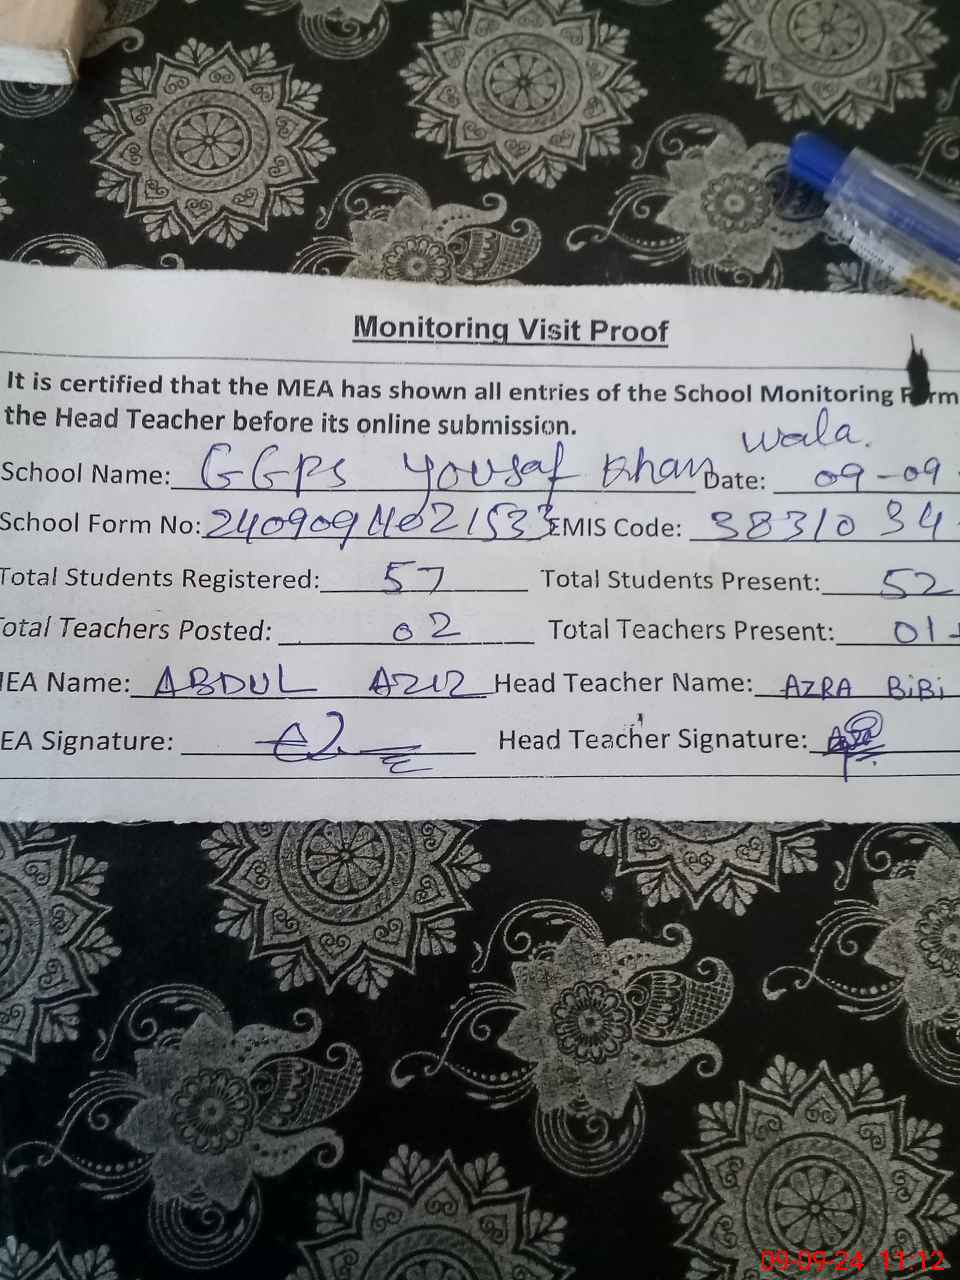 Monitoring Visit Proof
It is certified that the MEA has shown all entries of the School Monitoring Form
the Head Teacher before its online submission.
wala.
School Name: GGPS Yousaf Khan Date: 09-09
School Form No: EMIS Code: 3831034
Total Students Registered: 57 Total Students Present: 52
Total Teachers Posted: 02 Total Teachers Present: 01
MEA Name: ABDUL AZIZ Head Teacher Name: AZRA BiBi
EA Signature: Head Teacher Signature:
09-09-24 11:12